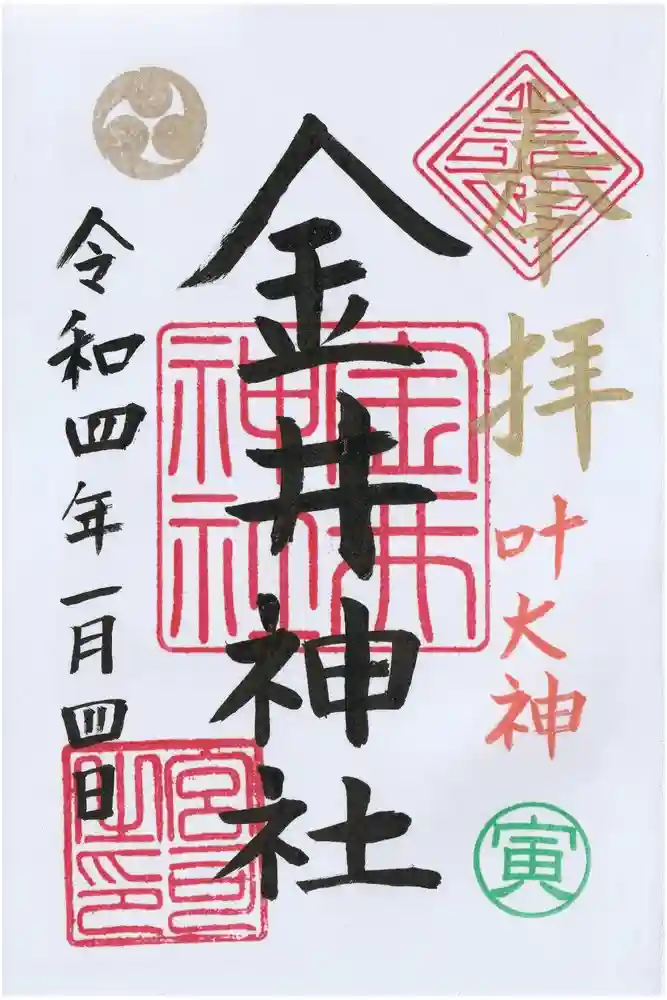 奉拝
叶大神
寅
金井神社
金井神社
令和四年一月四日
宮司之印